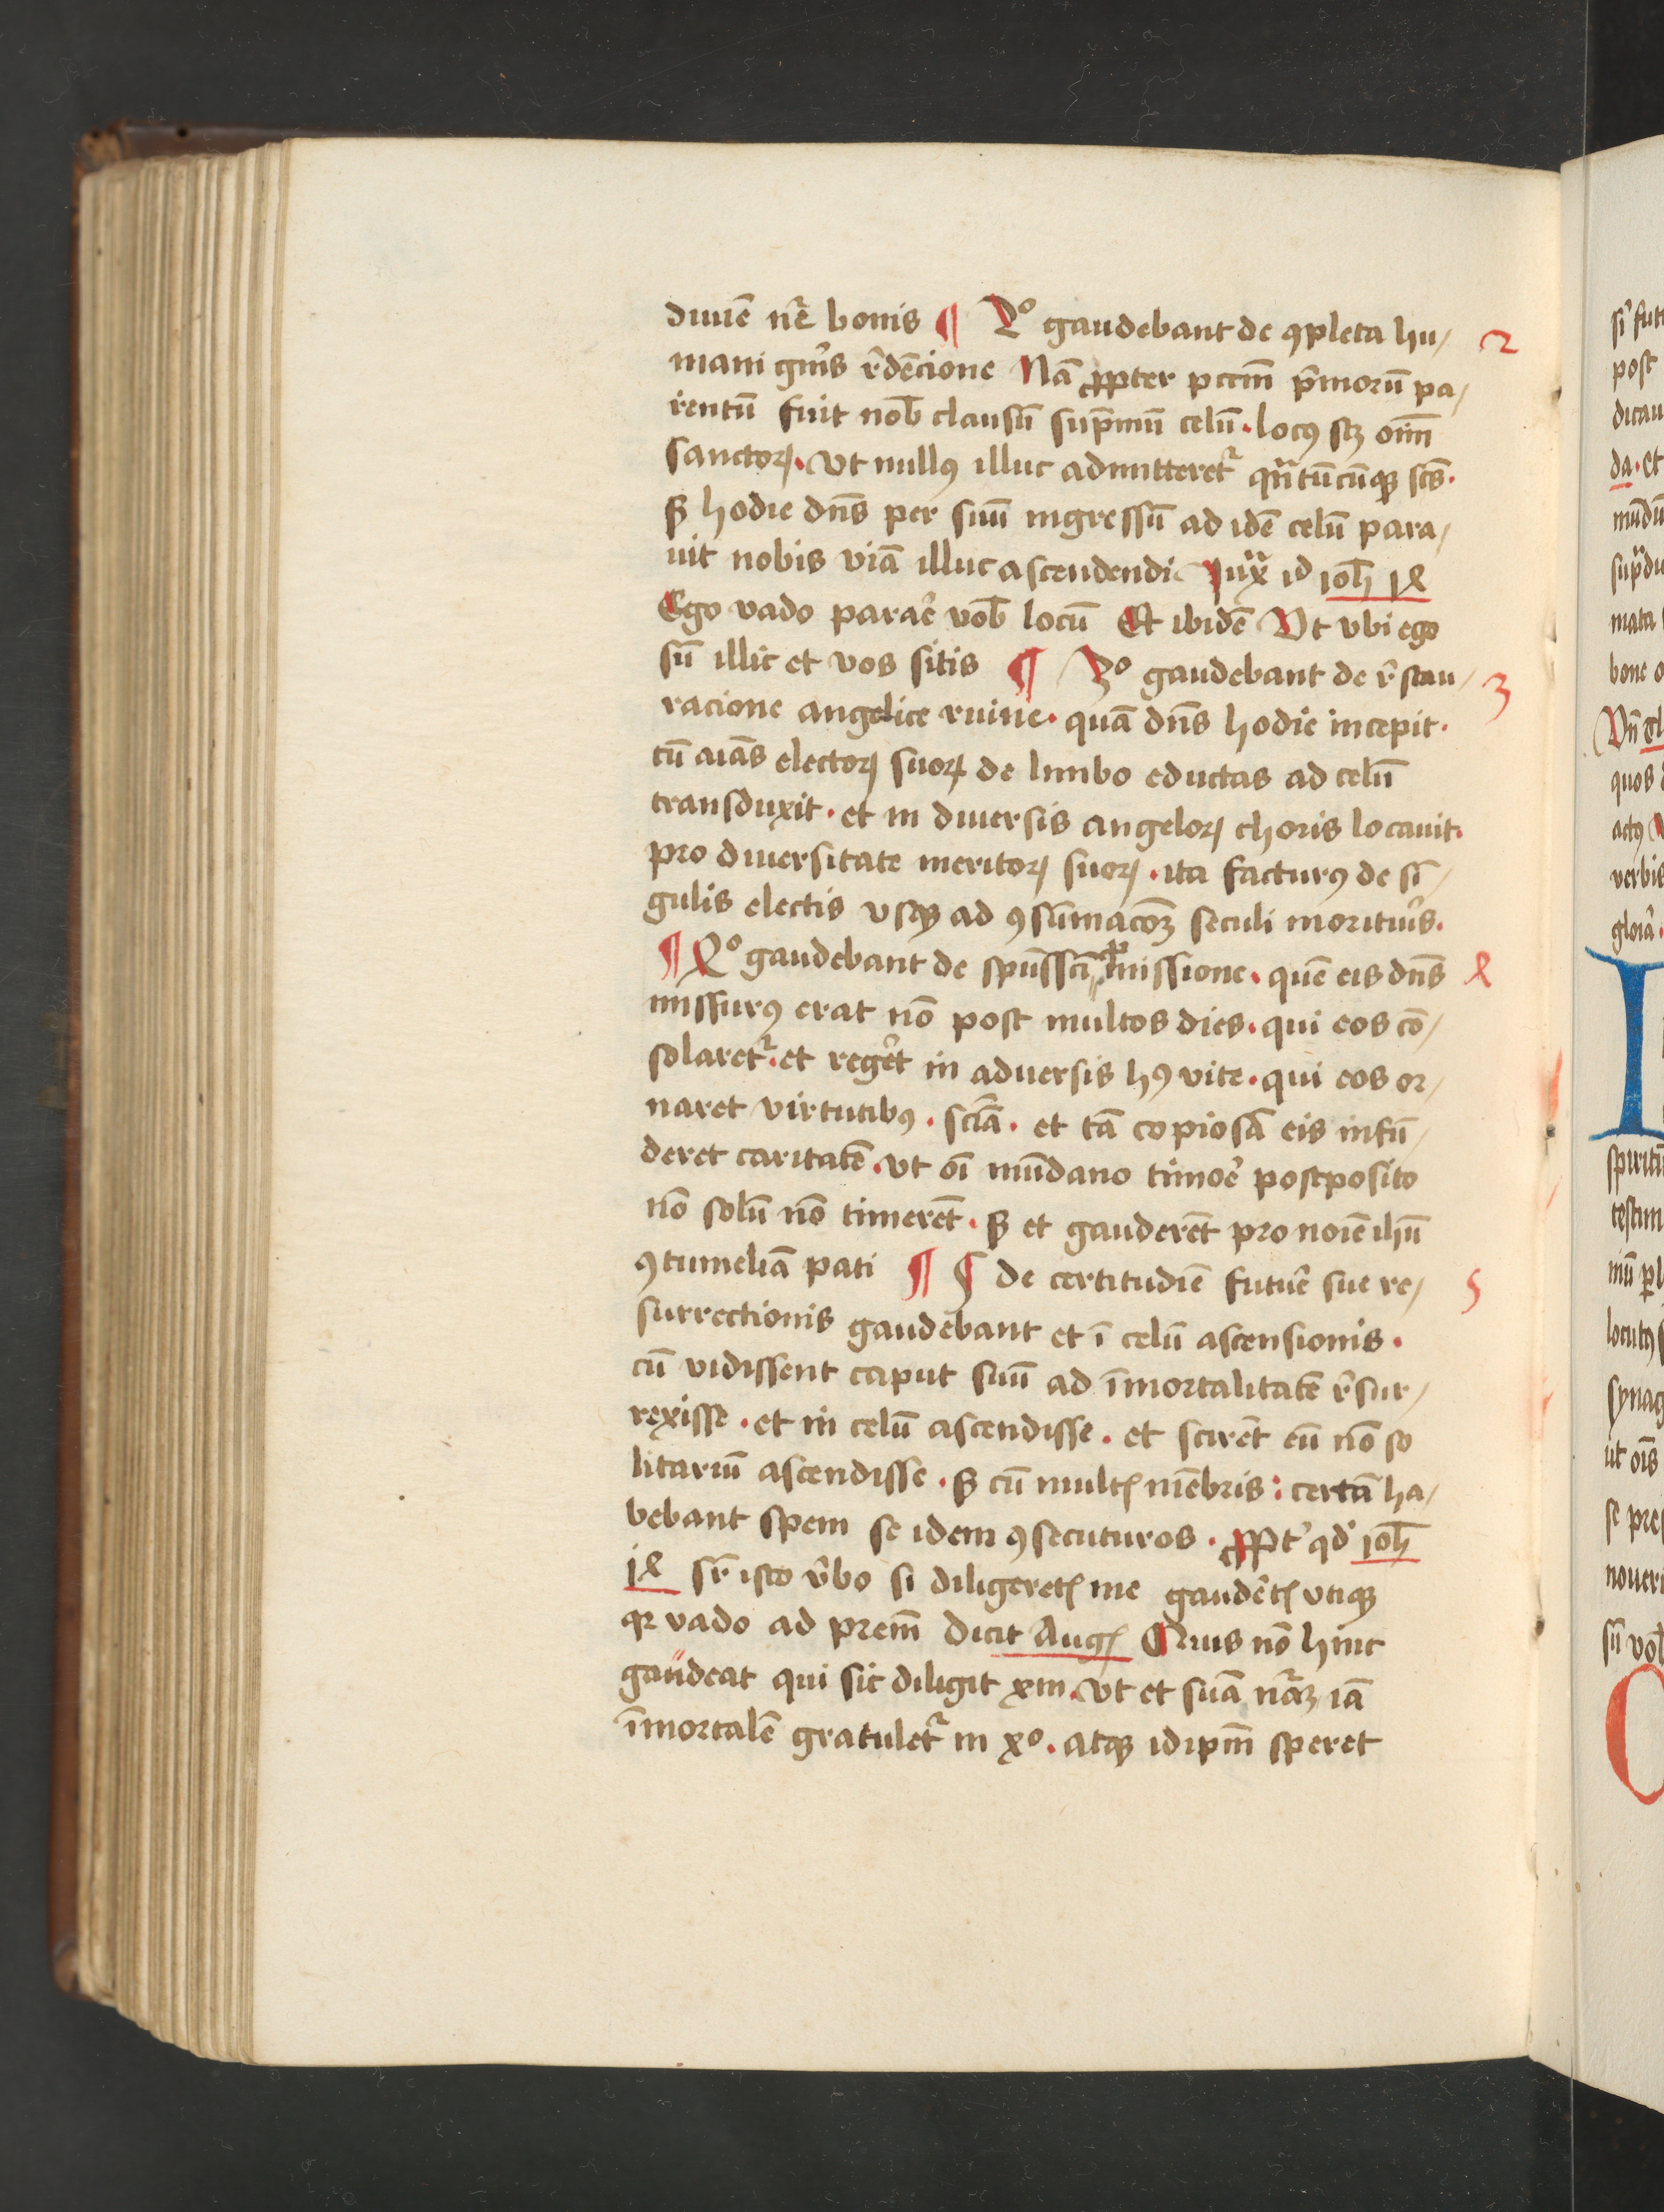 diuīe nr̄e bonis ¶ 2º gaudebant de ꝯpleta hu/ 2
mani gn̄is r̄dēcione Nā ꝓpter pccm̄ pͥmorū pa/
rentū fuit nob̄ clausū sup̄mū celū. locꝰ scꝫ oīm̄
sanctoꝝ. vt nullꝰ illuc admitteret᷑ qn̄tūcūqꝫ scūs.
sꝫ hodie dn̄s per suū ingressū ad idē celū para/
uit nobis viā illuc ascendendi Iux̄ id Ioh̄ 14
Ego vado parar̄e vob̄ locū Et ibidē Vt vbi ego
sū illic et vos sitis ¶ 3º gaudebant de r̄stau/ 3
racione angelice ruine. quā dn̄s hodie incepit.
cū aīas electoꝝ suoꝝ de limbo eductas ad celū
transduxit. et in diuersis angeloꝝ choris locauit.
pro diuersitate meritoꝝ suoꝝ. ita facturꝰ de sī/
gulis electis vsqꝫ ad ꝯsūmacōꝫ seculi moritur̄is.
¶ 4º gaudebant de spūssc̄i ꝓmissione. quē eis dn̄s 4
missurꝰ erat nō post multos dies. qui eos cō/
solaret᷑. et reger̄t in aduersis hꝰ vite. qui eos or/
naret virtutibꝰ. sciā. et tā copiosā eis infū/
deret caritatē. vt oī mūdano timor̄e postposito
nō solū nō timerēt. sꝫ et gauderēt pro noīe ihū
ꝯtumeliā pati ¶ 5 de certitudīe futur̄e sue re/ 5
surrectionis gaudebant et ī celū ascensionis.
cū vidissent caput suū ad īmortalitatē r̄sur/
rexisse. et in celū ascendisse. et scirēt eū nō so
litariū ascendisse. sꝫ cū multꝭ mēbris: certā ha/
bebant spem se idem ꝯsecuturos. ꝓpt̄ qd̄ Ioh̄
14 sr̄ isto v̄bo si diligeretꝭ me gauder̄etꝭ vtiqꝫ
qr vado ad prem̄ dicit Augꝭ Quis nō hinc
gaudeat qui sic diligit xm̄. vt et suā nār̄aꝫ iā
īmortalē gratulet᷑ in xº. atqꝫ idipm̄ speret